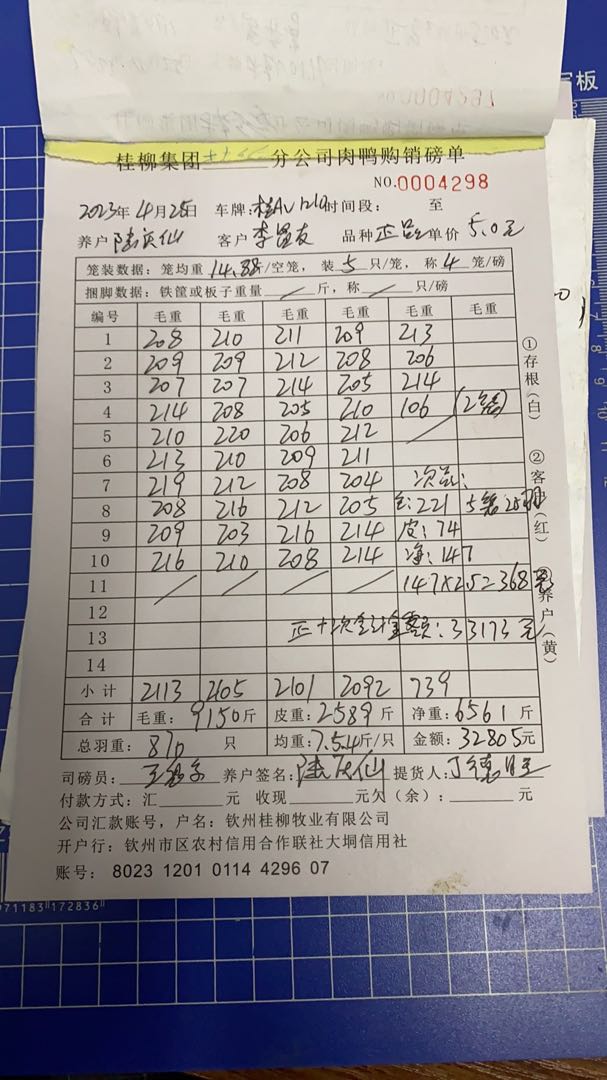 桂柳集团 分公司肉鸭购销磅单
NO.0004298
2023年 4月25日 车牌：桂AV1210 时间段： 至
养户 陆庆仙 客户 李显友 品种 正品 单价 5.0元
笼装数据：笼均重 14.88斤/空笼，装 5 只/笼，称 4 笼/磅
捆脚数据：铁筐或板子重量 / 斤，称 / 只/磅
编号 毛重 毛重 毛重 毛重 毛重 毛重
1 208 210 211 209 213
2 209 209 212 208 206
3 207 207 214 205 214
4 214 208 205 210 106 (2笼)
5 210 220 206 212 /
6 213 210 209 211
7 219 212 208 204 次品：
8 208 216 212 205 毛：221 5笼25羽
9 209 203 216 214 皮：74
10 216 210 208 214 净：147
11 / / / / 147×2.5=368元
12
13 正+次合计金额：33173元
14
小计 2113 2105 2101 2092 739
合计 毛重：9150斤 皮重：2589斤 净重：6561斤
总羽重：870 只 均重：7.54斤/只 金额：32805元
司磅员： 养户签名：陆庆仙 提货人：
付款方式：汇 元 收现 元欠（余）： 元
公司汇款账号，户名：钦州桂柳牧业有限公司
开户行：钦州市区农村信用合作联社大垌信用社
账号： 8023 1201 0114 4296 07
①存根（白）
②客（红）
③养户（黄）
写板
971183 172836